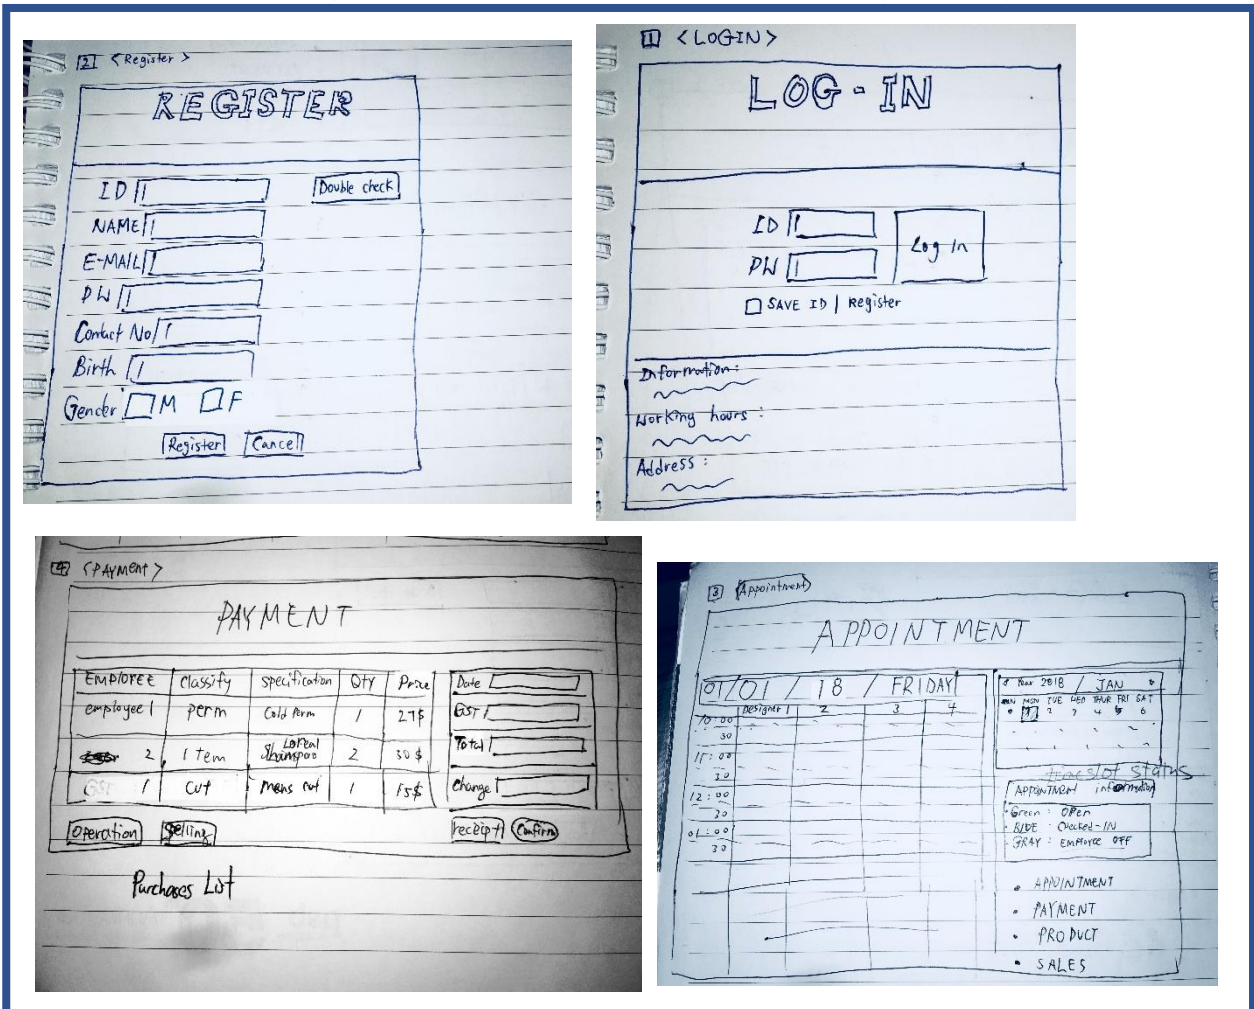 [2] <Register>
REGISTER
ID
Double check
NAME
E-MAIL
PW
Contact No
Birth
Gender M F
Register Cancel
[1] <LOGIN>
LOG-IN
ID
PW
Log in
SAVE ID | Register
Information:
Working hours:
Address:
[4] <PAYMENT>
PAYMENT
EMPLOYEE classify specification QTY Price
employee 1 perm Cold Perm 1 27$
2 Item Loreal Shampoo 2 30$
1 cut mens cut 1 15$
Date
GST
Total
change
Operation Selling
receipt Confirm
Purchases List
[3] <Appointment>
APPOINTMENT
01/01 / 18 / FRIDAY
Designer 1 2 3 4
10:00
30
11:00
30
12:00
30
01:00
30
Year 2018 / JAN
SUN MON TUE WED THUR FRI SAT
1 2 3 4 5 6
timeslot status
APPOINTMENT information
Green : OPen
BLUE : Checked-IN
GRAY : EMPloyee OFF
• APPOINTMENT
• PAYMENT
• PRODUCT
• SALES